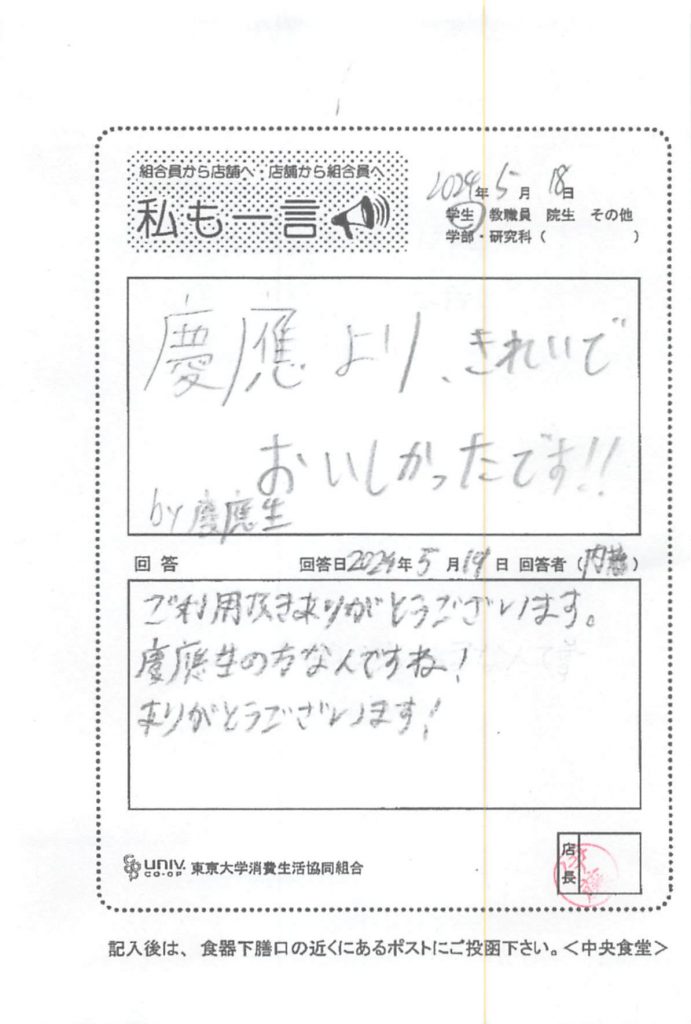 組合員から店舗へ・店舗から組合員へ
私も一言
2024年5月18日
学生 教職員 院生 その他
学部・研究科（ ）
慶應より、きれいで
おいしかったです!!
by 慶應生
回答 回答日2024年5月19日 回答者（内藤）
ご利用頂きありがとうございます。
慶應生の方なんですね!
ありがとうございます!
UNIV.
CO-OP
東京大学消費生活協同組合
店長
記入後は、食器下膳口の近くにあるポストにご投函下さい。＜中央食堂＞